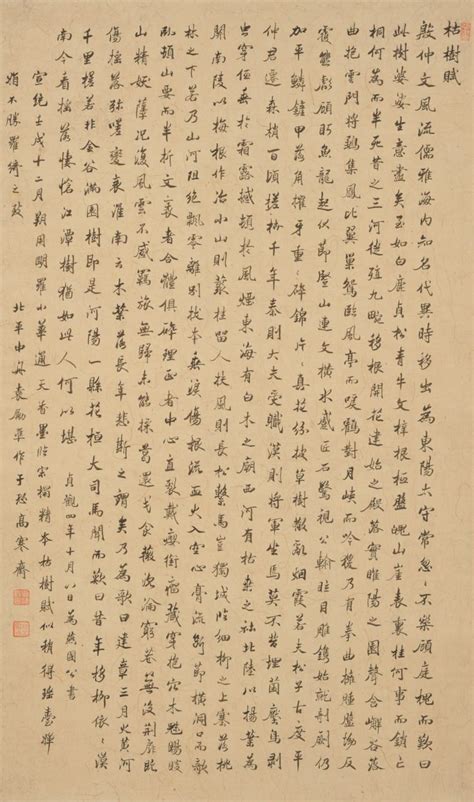 枯樹賦
殷仲文風流儒雅海內知名代異時移出為東陽太守常忽忽不樂顧庭槐而歎曰
此樹婆娑生意盡矣至如白鹿貞松青牛文梓根柢盤魄山崖表裏桂何事而銷亡
桐何為而半死昔之三河徙殖九畹移根開花建始之殿落實睢陽之園聲含嶰谷
曲抱雲門將雛集鳳比翼巢鴛臨風亭而唳鶴對月峽而吟猨乃有拳曲擁腫盤坳反
覆熊彪顧盼魚龍起伏節竪山連文橫水蹙匠石驚視公輸眩目雕鐫始就剞劂仍
加平鱗鏟甲落角摧牙重重碎錦片片真花紛披草樹散亂烟霞若夫松子古度平
仲君遷森梢百頃槎枿千年秦則大夫受職漢則將軍坐焉莫不苔埋菌壓鳥剝
虫穿低垂於霜露撼頓於風煙東海有白木之廟西河有枯桑之社北陸以楊葉為
關南陵以梅根作冶小山則叢桂留人扶風則長松繫馬豈獨城臨細柳之上塞落桃
林之下若乃山河阻絕飄零離別拔本垂淚傷根流血火入空心膏流斷節橫洞口而欹
臥頓山要而半折文衺者合體俱碎理正者中心直裂戴癭銜瘤藏穿抱穴木魅睗睒
山精妖孽況復風雲不感羈旅無歸未能採葛還成食薇沈淪窮巷蕪沒荊扉既
傷搖落彌嗟變衰淮南云木葉落長年悲斯之謂矣乃為歌曰建章三月火黃河
千里槎若非金谷滿園樹即是河陽一縣花桓大司馬聞而歎曰昔年移柳依依漢
南今看搖落悽愴江潭樹猶如此人何以堪 貞觀四年十月八日為燕國公書
宣統壬戌十二月朔用明羅小華通天香墨臨宋搨精本枯樹賦似稍得瑤臺嬋
娟不勝羅綺之致
北平中舟袁勵準作于恐高寒齋